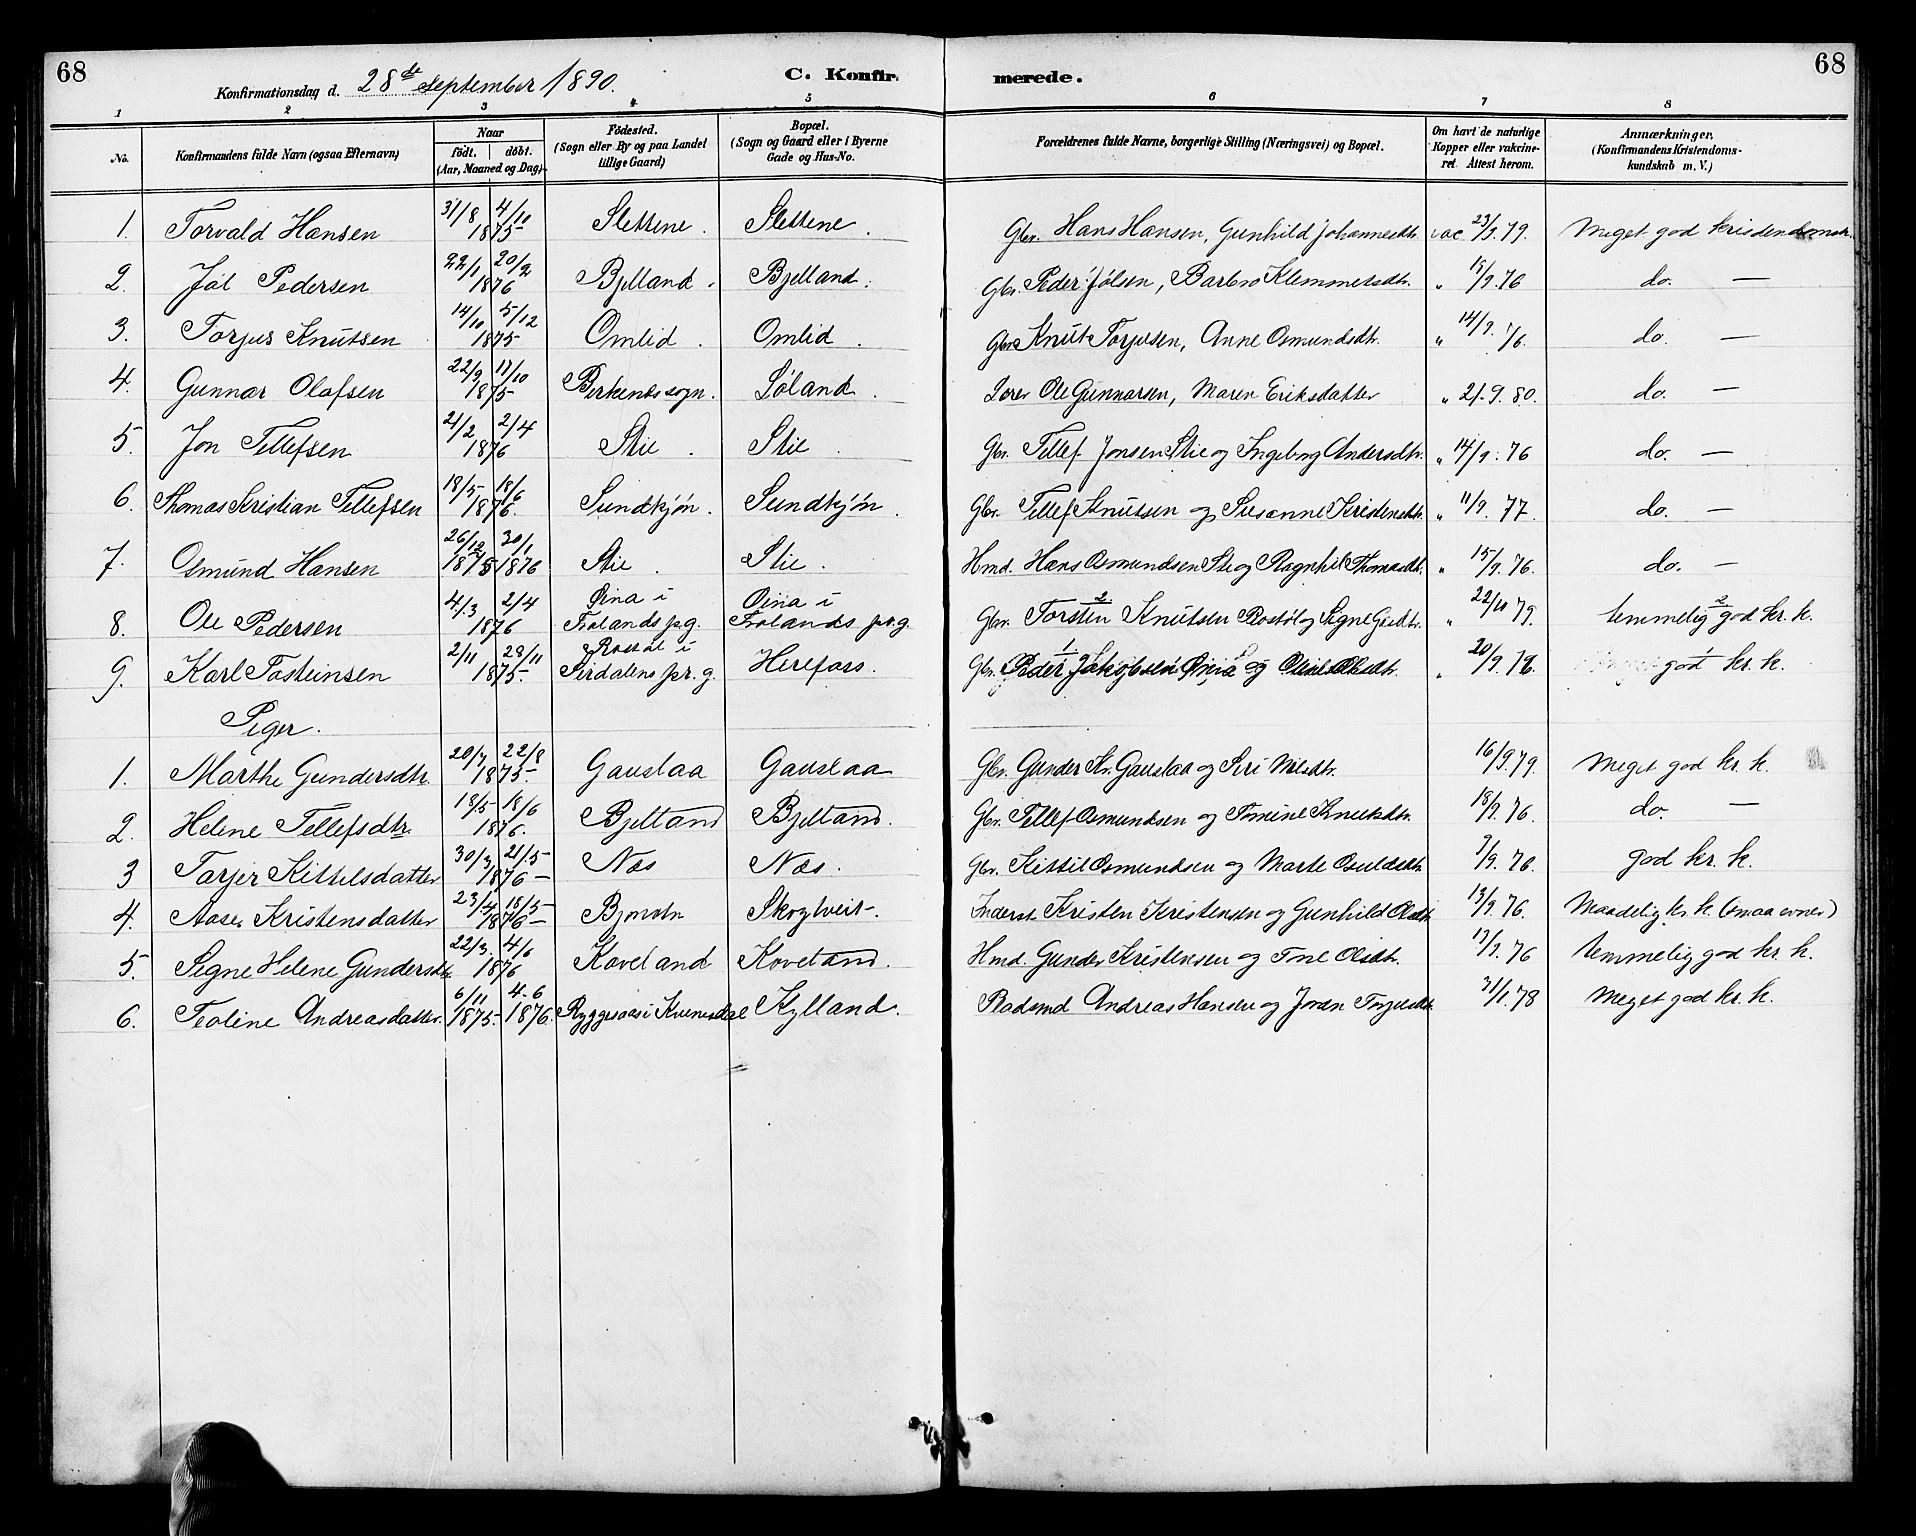 68
Konfirmationsdag d. 28de september 1890.
C. Konfirmerede.
68
1 2 3 4 5 6 7 8
No.
Konfirmandens fulde Navn (ogsaa Efternavn)
Naar
födt. döbt.
(Aar, Maaned og Dag)
Födested.
(Sogn eller By og paa Landet
tillige Gaard)
Bopæl.
(Sogn og Gaard eller i Byerne
Gade og Hus-No.
Forældrenes fulde Navne, borgerlige Stilling (Næringsvei) og Bopæl.
Om havt de naturlige
Kopper eller vakcine-
ret. Attest herom.
Anmærkninger.
(Konfirmandens Kristendoms-
kundskab m. V.)
1. Torvald Hansen 31/8 4/10 1875 Slettene. Slettene. Gbr. Hans Hansen, Gunhild Johannesdtr. vac 23/9. 79. Meget god kristendomsk.
2. Jól Pedersen 22/1 20/2 1876 Bjelland. Bjelland. Gbr. Peder Jólsen, Barbro Klemmetsdtr. " 15/9. 76 do. —
3. Torjus Knutsen 14/10 5/12 1875 Omlid. Omlid. Gbr Knut Torjusen, Anne Osmundsdtr. " 14/9. 76. do. —
4. Gunnar Olafsen 22/9 17/10 1875 Birkenes sogn. Søland. Lærer Ole Gunnarsen, Maren Eriksdatter " 21. 9. 80. do. —
5. Jon Tellefsen 21/2 2/4 1876 Stie. Stie. Gbr. Tellef Jonsen Stie og Ingeborg Andersdtr. " 14/9. 76 do. —
6. Thomas Kristian Tellefsen 18/5 18/6 1876. Sundtjón. Sundtjón. Gbr. Tellef Knutsen og Susanne Kristensdtr. " 11/9. 77. do. —
7. Osmund Hansen 26/12 1875 30/1 1876 Stie. Stie. Hmd. Hans Osmundsen Stie og Ragnhil Thomasdtr. " 15/9. 76. do. —
8. Ole Pedersen 4/3 2/4 1876 Øina i Frolands pr.g. Øina i Frolands pr.g. Gbr. Torsten 2 Knutsen Rostøl og Signe Gundtr. " 22/11 79. temmelig 2 god kr. k.
9. Karl Tosteinsen 2/11 28/11 1875 Rostøl i Sirdalens pr.g. Herefoss. Gbr. Peder 1 Jakobsen Øina og Olsdtr. " 20/9. 76. god 1 kr. k.
Piger.
1. Marthe Gundersdtr. 20/7 22/8 1875. Gauslaa Gauslaa Gbr. Gunder Kr. Gauslaa og Siri Nilsdtr. 16/9. 79. Meget god kr. k.
2. Helene Tellefsdtr. 18/5 18/6 1876. Bjelland Bjelland. Gbr. Tellef Osmundsen og Tomine Knutsdtr. 18/9. 76. do. —
3 Torjer Kittelsdatter 30/3 21/5 1876 Næs Næs. Gbr. Kittil Osmundsen og Marte Osuldsdtr. 7/9. 76. god kr. k.
4. Aase Kristensdatter 23/4 15/5 1876 Skogtveit. Inderst Kristen Kristensen og Gunhild Olsdtr. 13/9. 76. Maadelig kr. k. (smaa evner)
5. Signe Helene Gundersdtr 22/3. 4/6 1876 Koveland Koveland. Hmd. Gunder Kristensen og Tone Olsdtr. 13/9. 76 temmelig god kr. k.
6. Teoline Andreasdatter. 6/11 1875. 4. 6 1876. Ryggesaas i Kvinesdal Kylland. Andreas Hansen og 31/1. 78 Meget god kr. k.